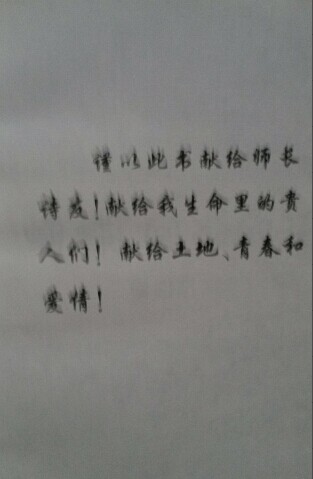 谨以此书献给师长
诗友!献给我生命里的贵
人们! 献给土地、青春和
爱情!